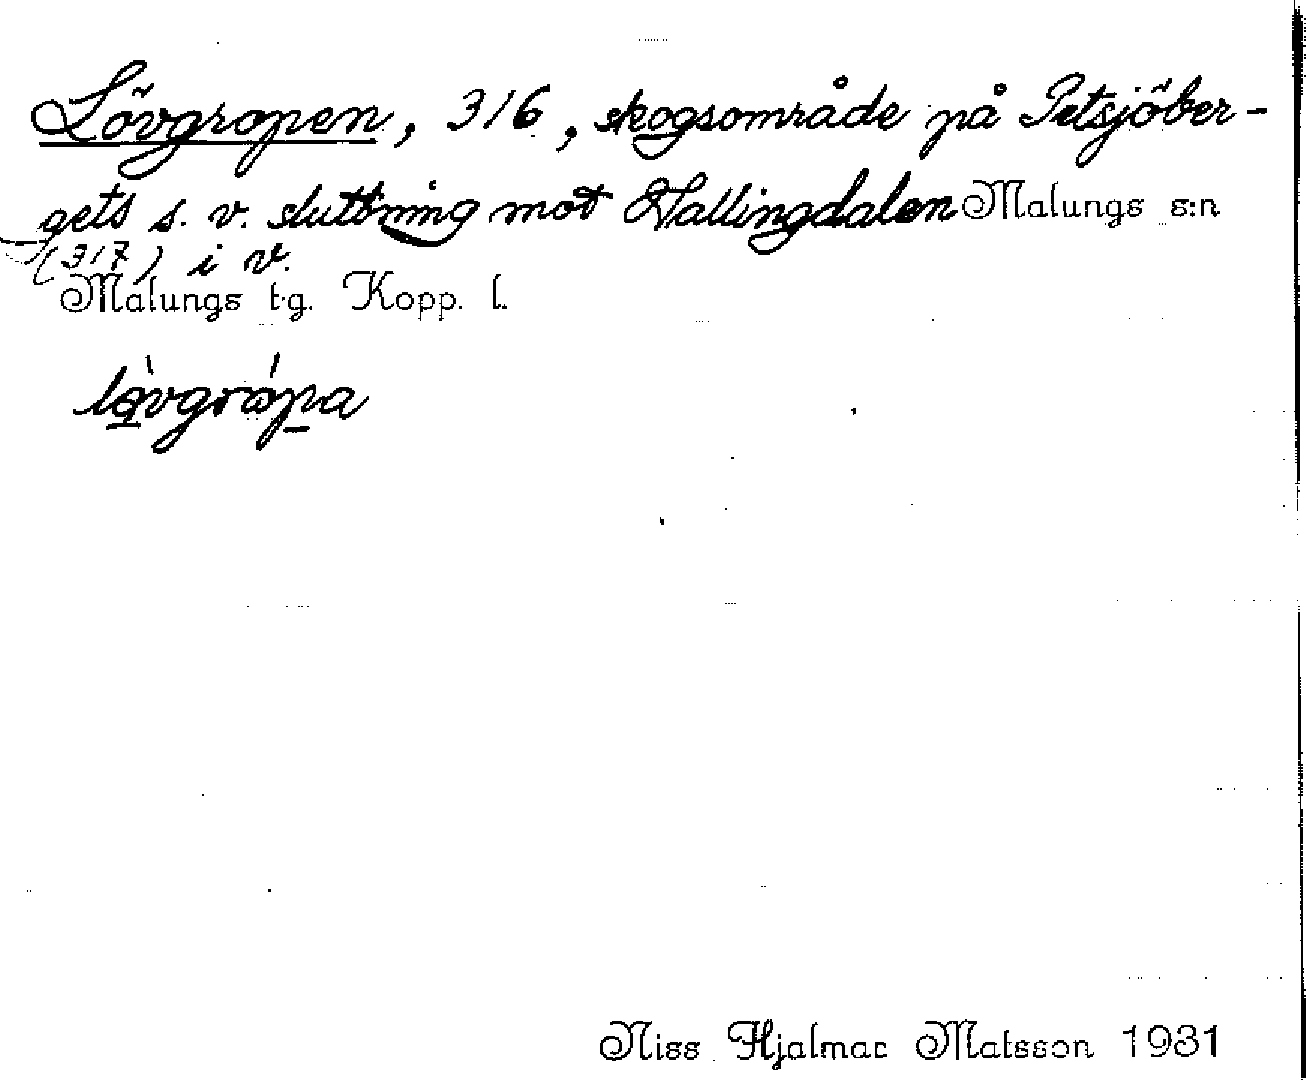 Lövgropen, 316, skogsområde på Petsjöber-
gets s. v. sluttning mot Vallingdalen Malungs s:n
(317) i v.
Malungs t.g. Kopp. l.
lǫ̀vgrópa
Niss Hjalmar Matsson 1931